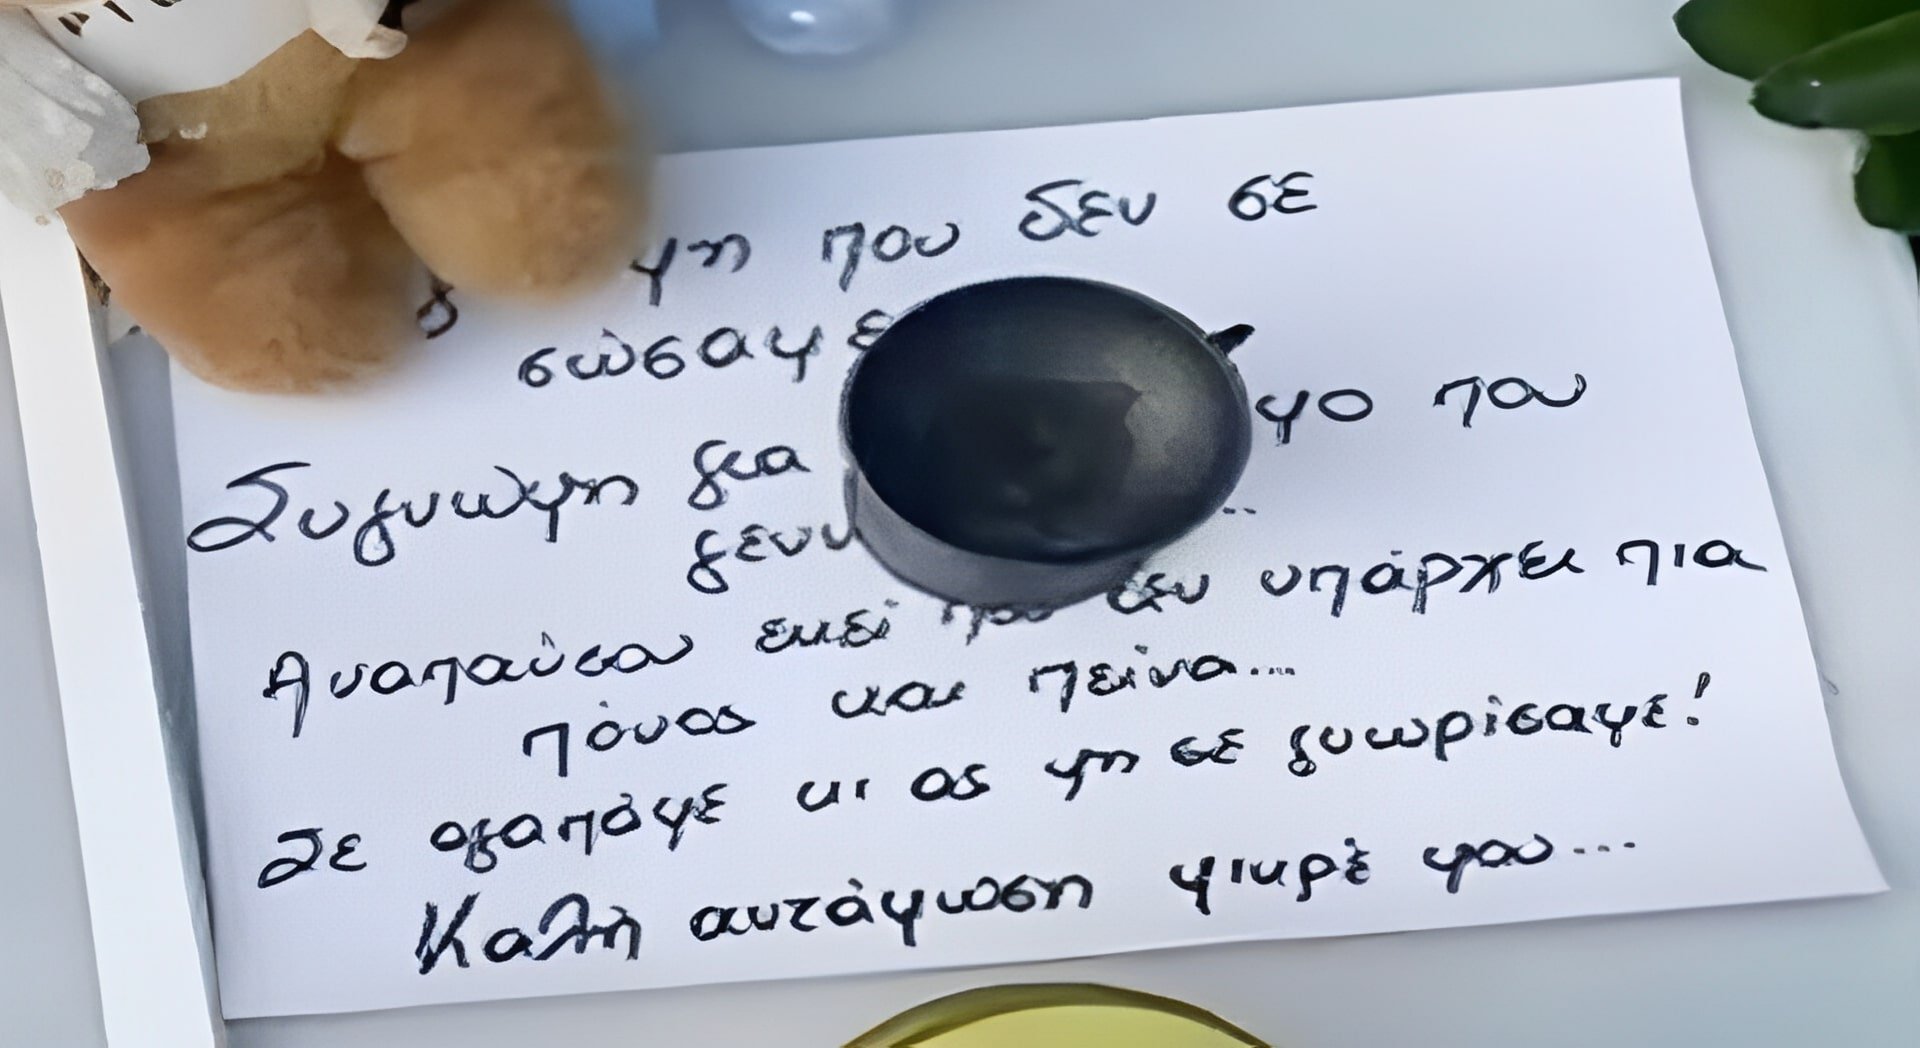 που δεν σε
Συγνώμη για που
Αναπαύσου εκεί που δεν υπάρχει πια
πόνος και πείνα...
Σε αγαπάμε κι ας μη σε γνωρίσαμε!
Καλή αντάμωση μικρέ μου...